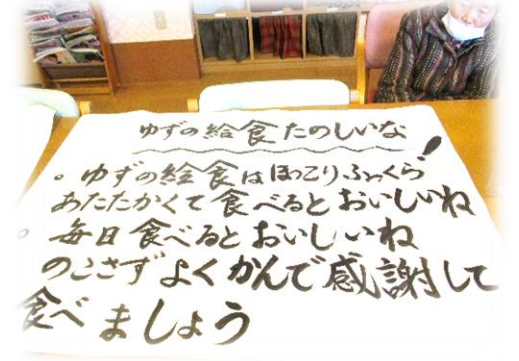 ゆずの給食たのしいな!
。ゆずの給食はほっこりふっくら
あたたかくて食べるとおいしいね
。毎日食べるとおいしいね
のこさずよくかんで感謝して
食べましょう